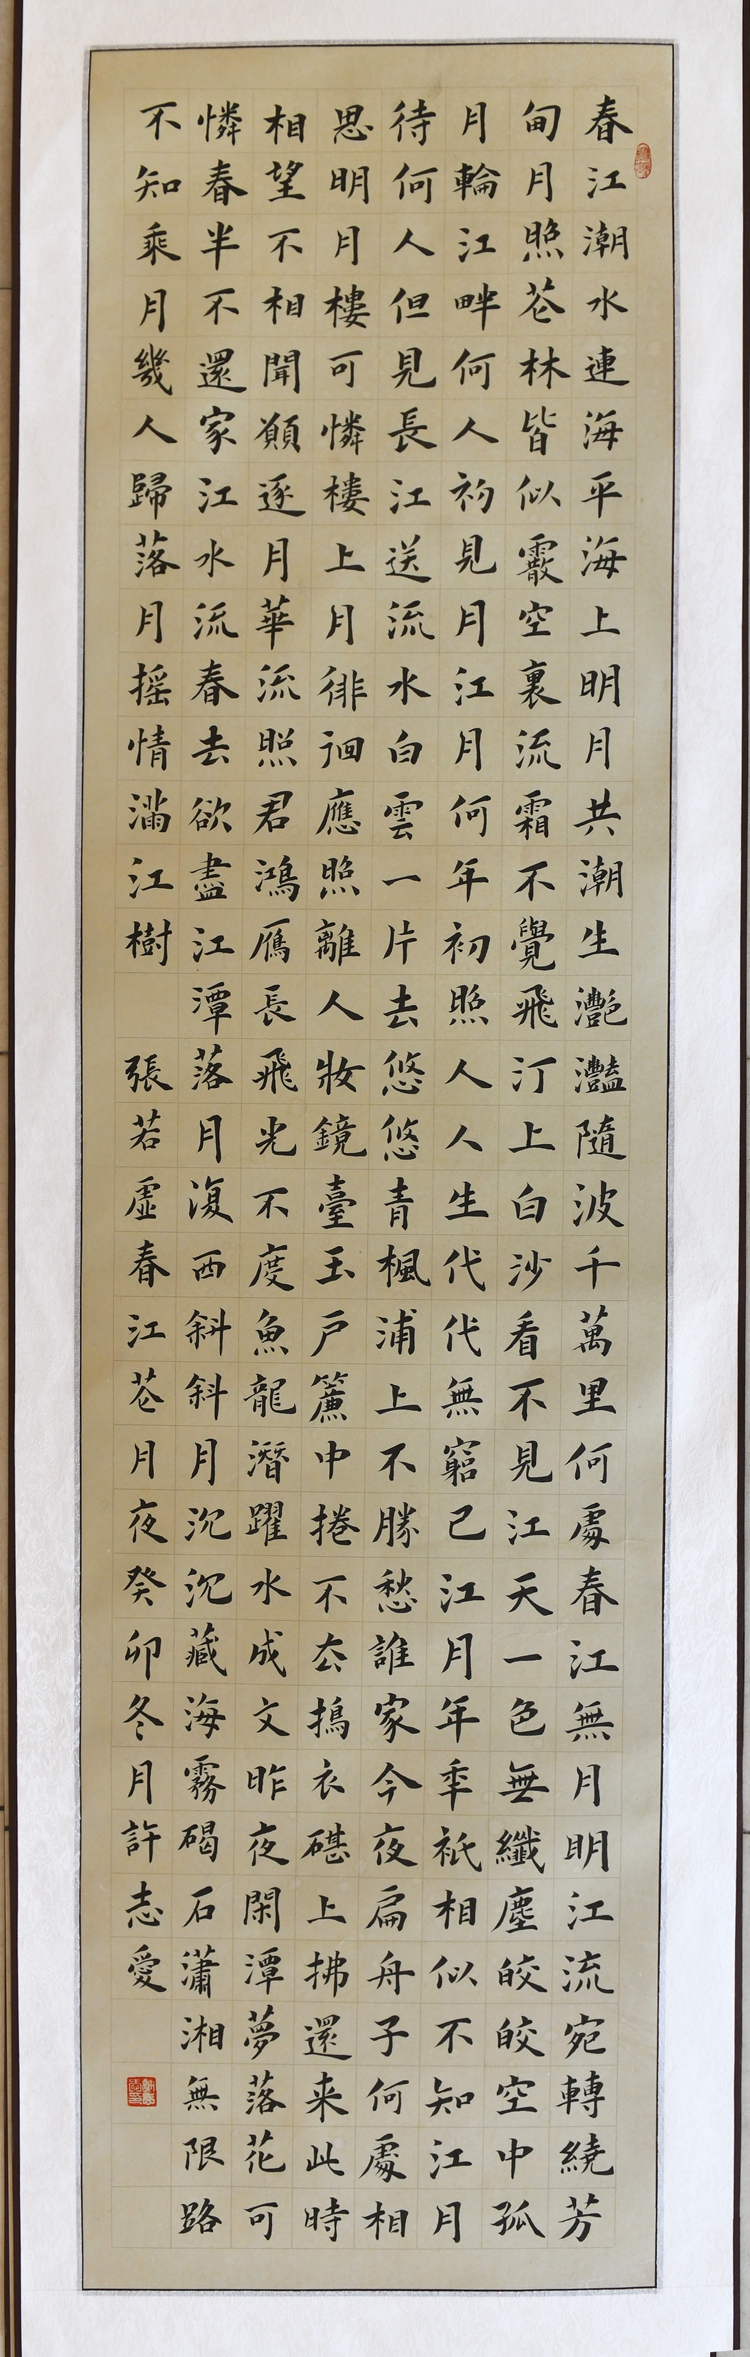 春江潮水連海平海上明月共潮生灧灩隨波千萬里何處春江無月明江流宛轉繞芳
甸月照芲林皆似霰空裏流霜不覺飛汀上白沙看不見江天一色無纖塵皎皎空中孤
月輪江畔何人初見月江月何年初照人人生代代無窮已江月年秊祗相似不知江月
待何人但見長江送流水白雲一片去悠悠青楓浦上不勝愁誰家今夜扁舟子何處相
思明月樓可憐樓上月徘徊應照離人妝鏡臺玉戶簾中捲不厺搗衣碪上拂還来此時
相望不相聞願逐月華流照君鴻鴈長飛光不度魚龍潛躍水成文昨夜閑潭夢落花可
憐春半不還家江水流春去欲盡江潭落月復西斜斜月沉沉藏海霧碣石瀟湘無限路
不知乘月幾人歸落月摇情滿江樹 張若虛春江芲月夜癸卯冬月許志愛